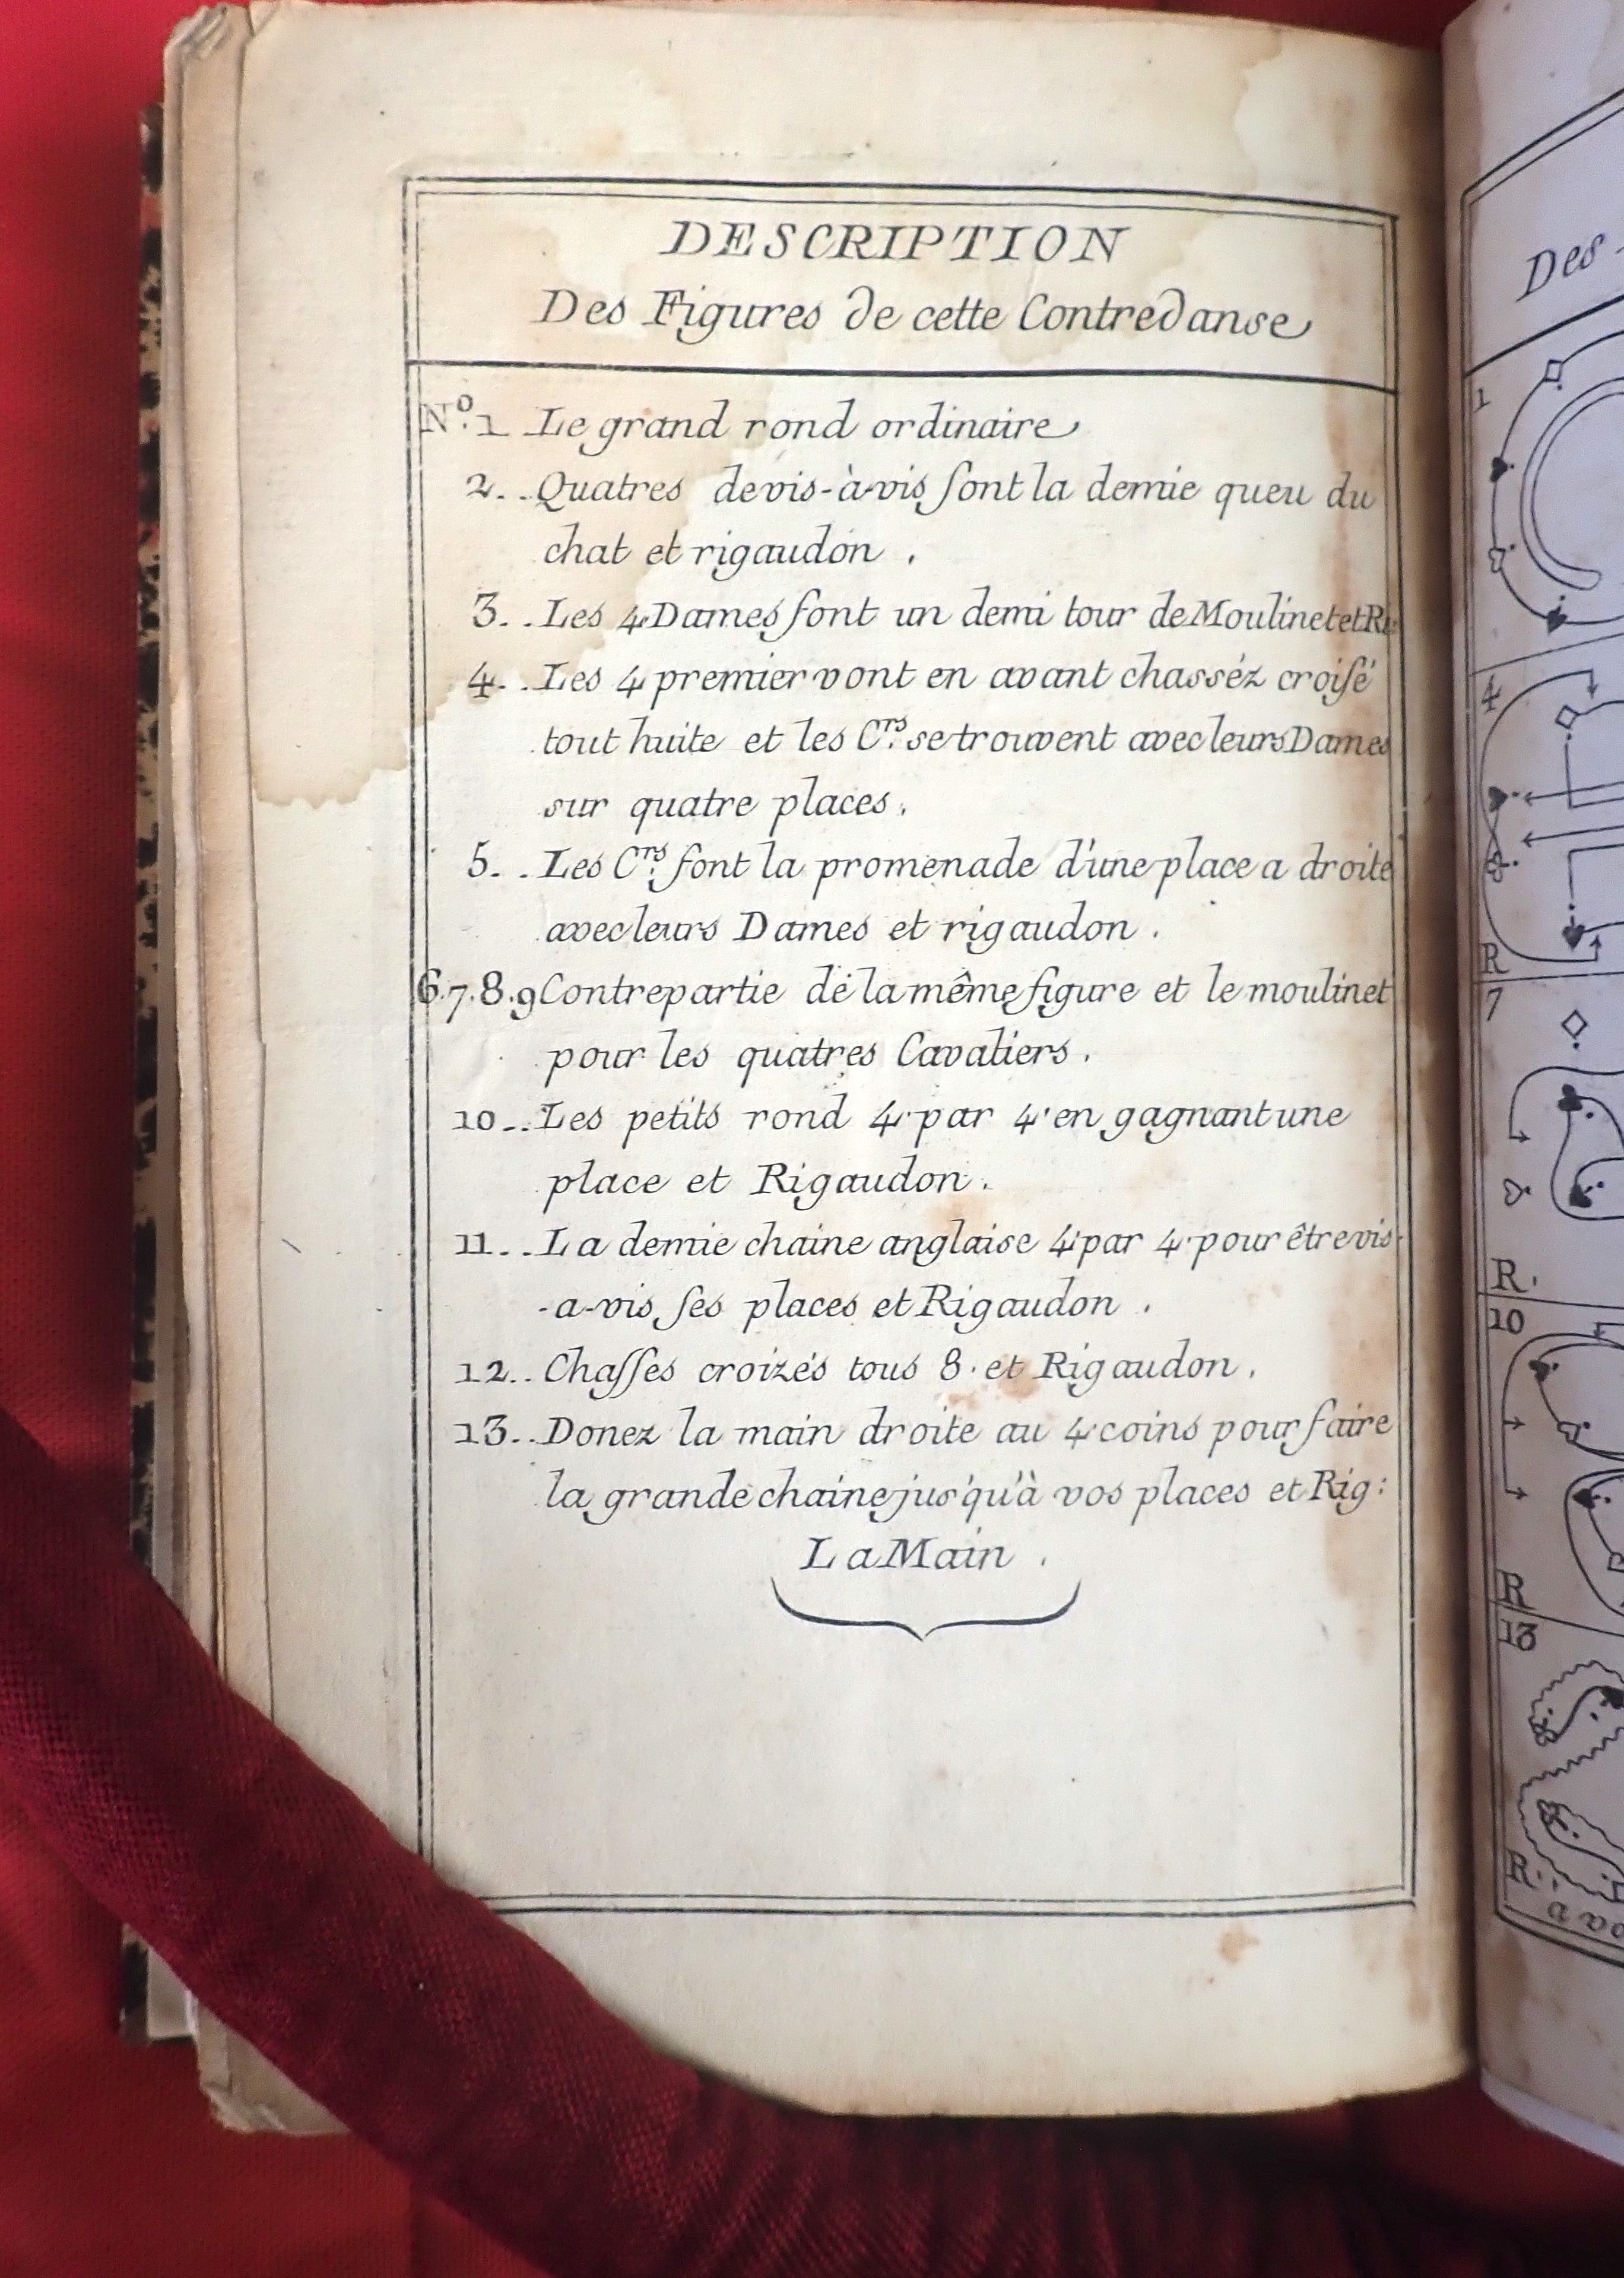 DESCRIPTION
Des Figures de cette Contredanse
N.º 1 Le grand rond ordinaire
2. . Quatres de vis-à-vis font la demie queu du
chat et rigaudon .
3. . Les 4 Dames font un demi tour de Moulinet et Ri
4. . Les 4 premier vont en avant chasséz croisé
tout huite et les C.rs se trouvent avec leurs Dames
sur quatre places .
5. . Les C.rs font la promenade d'une place a droite
avec leurs Dames et rigaudon .
6.7.8.9 Contrepartie de la même figure et le moulinet
pour les quatres Cavaliers .
10 . . Les petits rond 4 par 4 en gagnant une
place et Rigaudon .
11 . . La demie chaine anglaise 4 par 4 pour être vis-
-a-vis ses places et Rigaudon .
12 . . Chasses croizés tous 8 . et Rigaudon .
13 . . Donez la main droite au 4 coins pour faire
la grande chaine jus'qu'à vos places et Rig :
La Main .
Des
1
4
R
7
R .
10
R
13
R .
a vo